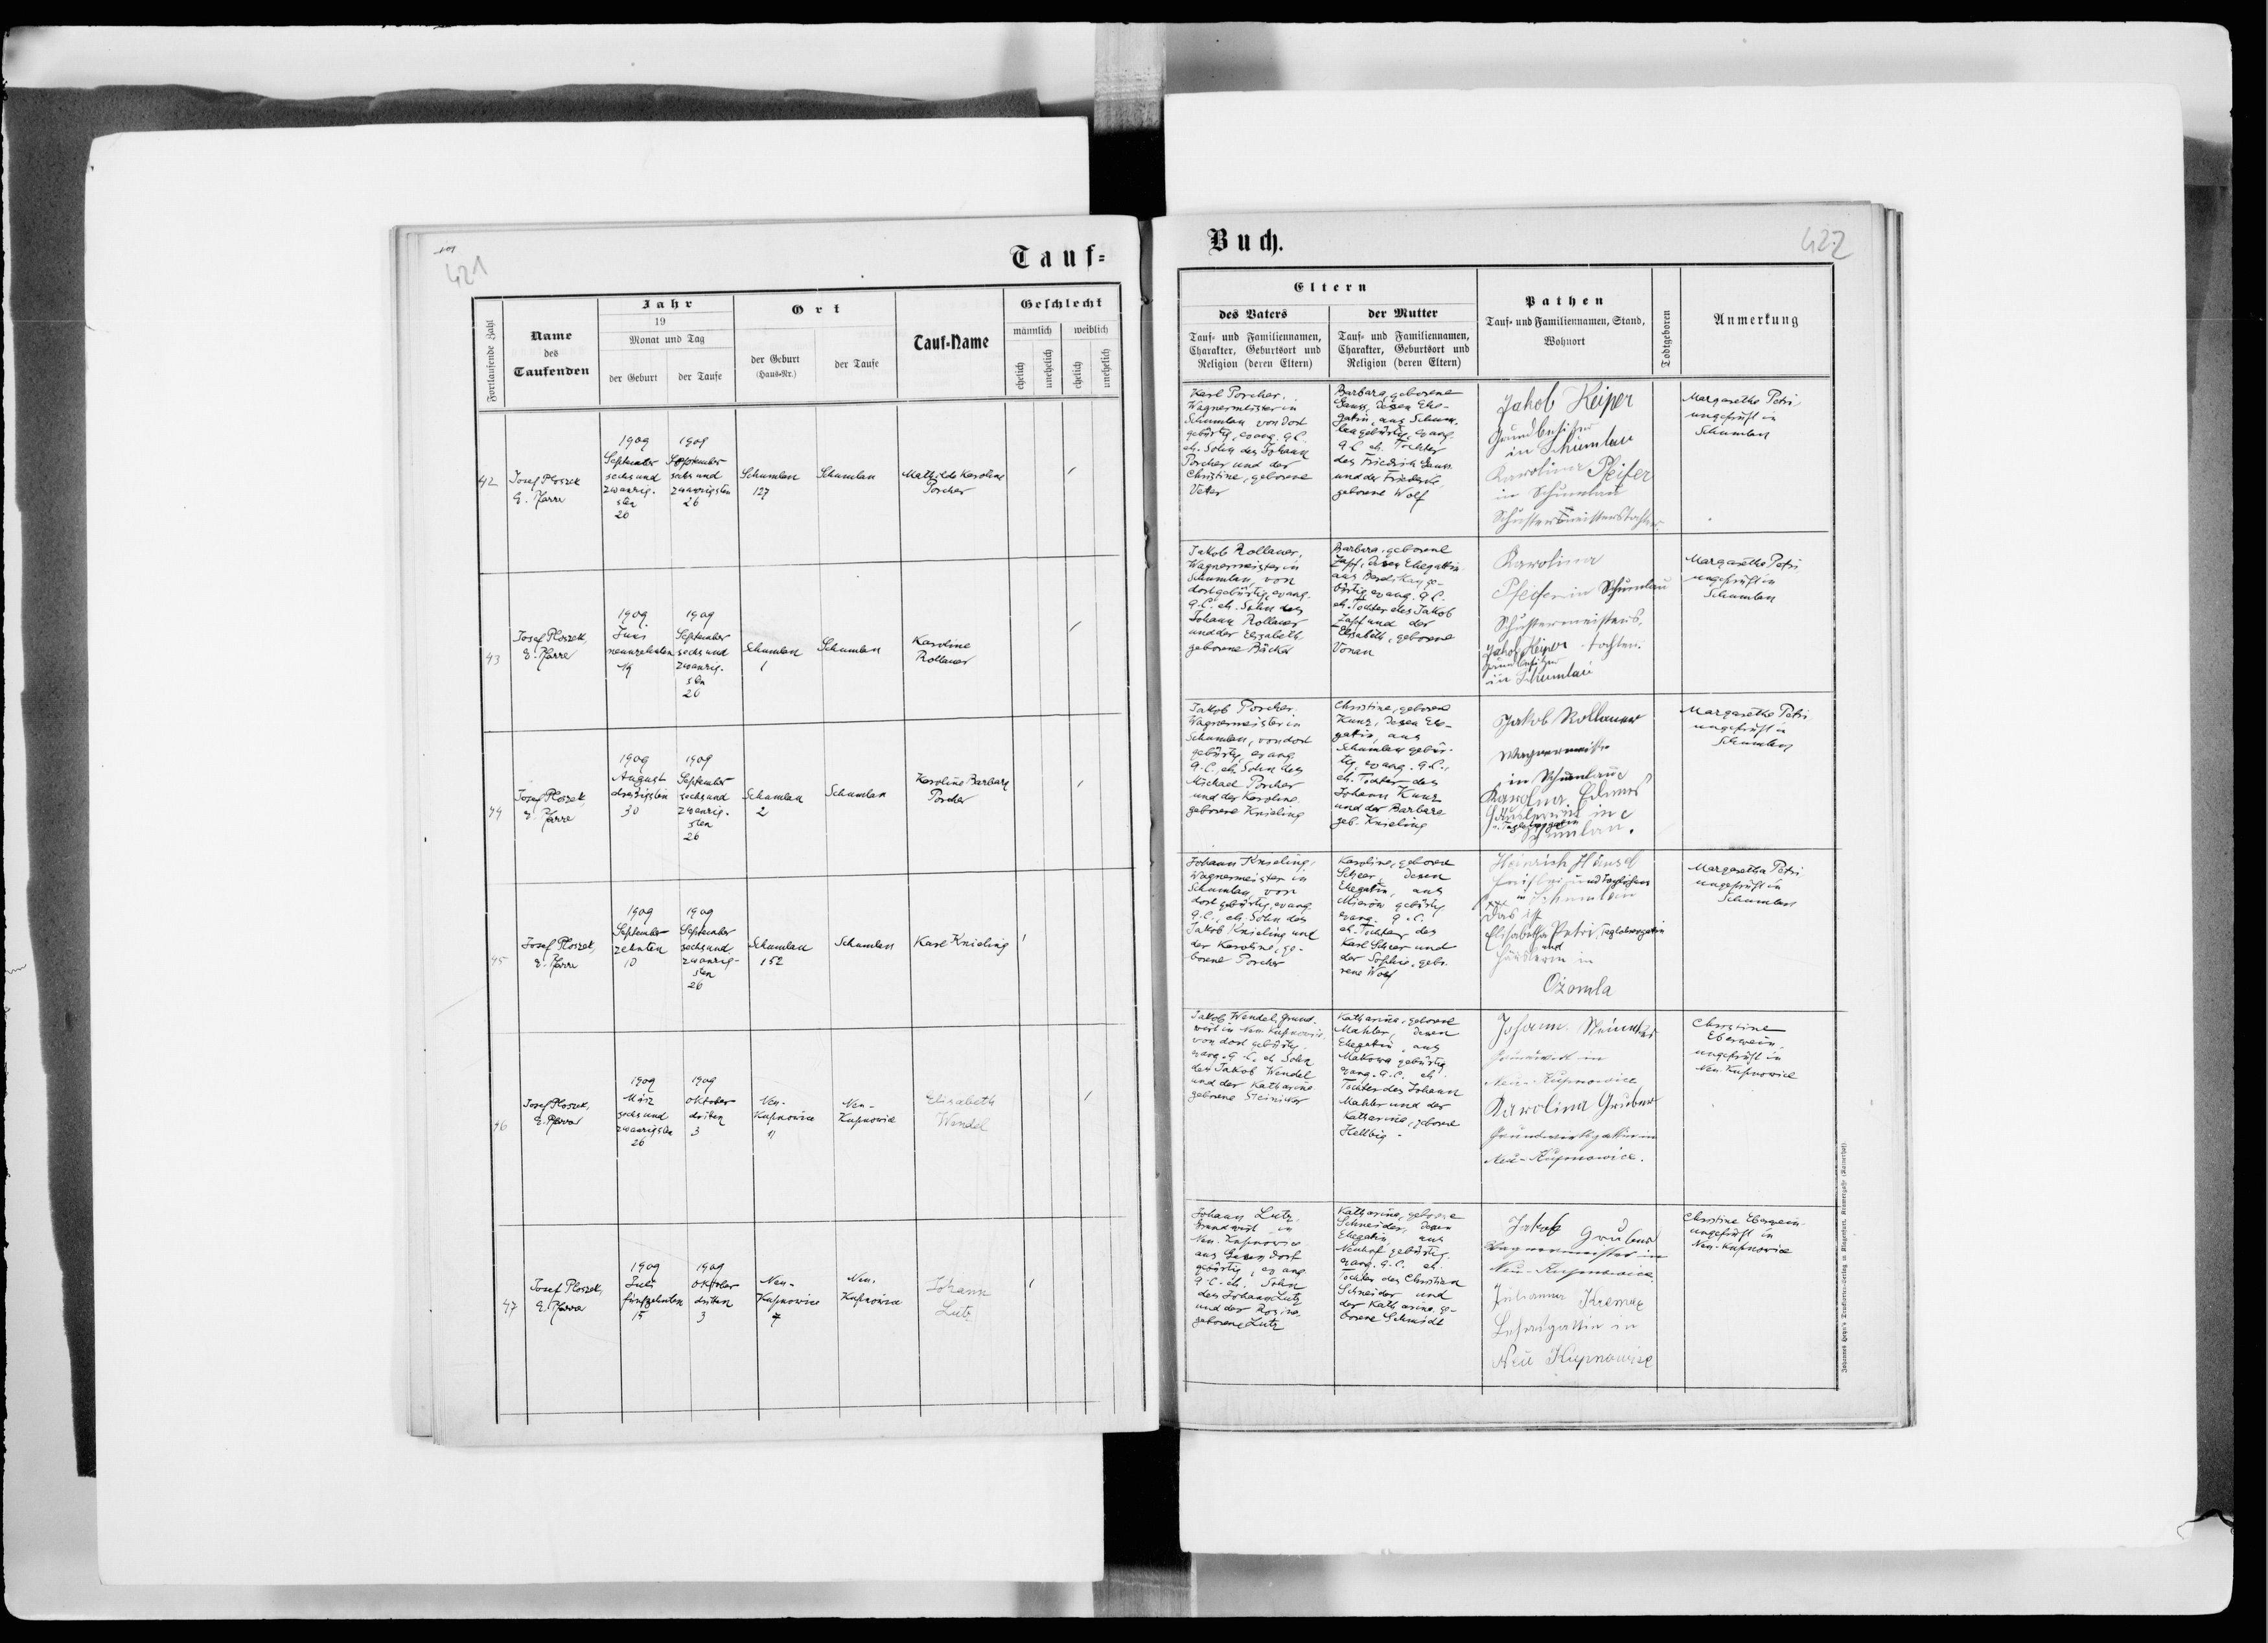 421
Tauf=
Fortlaufende Zahl
Name
des
Taufenden
Jahr
19
Monat und Tag
der Geburt
der Taufe
Ort
der Geburt
(Haus-Nr.)
der Taufe
Tauf-Name
Geschlecht
männlich
weiblich
ehelich
unehelich
ehelich
unehelich
42
Josef Ploszek
E. Pfarrer
1909
September
sechsund
zwanzig-
sten
26
1909
September
sechsund
zwanzigsten
26
Schumlau
127
Schumlau
Mathilde Karoline
Porcher
43
Josef Ploszek,
E. Pfarrer
1909
Juni
neunzehnten
19
1909
September
sechsund
zwanzig-
sten
26
Schumlau
1
Schumlau
Karoline
Rollauer
44
Josef Ploszek,
E. Pfarrer
1909
August
dreißigsten
30
1909
September
sechsund
zwanzig-
sten
26
Schumlau
2
Schumlau
Karoline Barbara
Porcher
45
Josef Ploszek,
E. Pfarrer
1909
September
zehnten
10
1909
September
sechsund
zwanzig-
sten
26
Schumlau
152
Schumlau
Karl Knieling
46
Josef Ploszek,
E. Pfarrer
1909
März
sechsund
zwanzigsten
26
1909
Oktober
dritten
3
Neu-
Kupnowice
11
Neu-
Kupnowice
Elisabeth
Wendel
47
Josef Ploszek,
E. Pfarrer
1909
Juli
fünfzehnten
15
1909
Oktober
dritten
3
Neu-
Kupnowice
4
Neu-
Kupnowice
Johann
Lutz
Buch.
422
Eltern
des Vaters
Tauf= und Familiennamen,
Charakter, Geburtsort und
Religion (deren Eltern)
der Mutter
Tauf= und Familiennamen,
Charakter, Geburtsort und
Religion (deren Eltern)
Pathen
Tauf= und Familiennamen, Stand,
Wohnort
Todtgeboren
Anmerkung
Karl Porcher,
Wagnermeister in
Schumlau von dort
gebürtig, evang. A.C.
eh. Sohn des Johann
Porcher und der
Christine, geborene
Veter
Barbara, geborene
Gauss, dessen Ehe-
gatin, aus Schum-
lau gebürtig, evang.
A.C. eh. Tochter
des Friedrich Gauss
und der Friederike,
geborene Wolf
Jakob Keiper
Grundbesitzer
in Schumlau
Karolina Pfeifer
in Schumlau
Schustermeisterstochter.
Margarethe Petri
ungeprüft in
Schumlau
Jakob Rollauer,
Wagnermeister in
Schumlau, von
dort gebürtig, evang.
A.C. eh. Sohn des
Johann Rollauer
und der Elisabeth
geborene Bäcker
Barbara, geborene
Zapf, dessen Ehegattin
aus ge-
bürtig, evang. A.C.
eh. Tochter des Jakob
Zapf und der
Elisabeth, geborene
Vonau
Karolina
Pfeifer in Schumlau
Schustermeisters,
Jakob Keiper tochter.
Grundbesitzer
in Schumlau
Margarethe Petri
ungeprüft in
Schumlau
Jakob Porcher,
Wagnermeister in
Schumlau, von dort
gebürtig, evang.
A.C., eh. Sohn des
Michael Porcher
und der Karoline
geborene Knieling
Christine, geborene
Kunz, dessen Ehe-
gatin, aus
Schumlau gebür-
tig, evang. A.C.,
eh. Tochter des
Johann Kunz
und der Barbara
geb. Knieling
Jakob Rollauer
Wagnermeister
in Schumlau
Karolina
in
Schumlau.
Margarethe Petri
ungeprüft in
Schumlau
Johann Knieling,
Wagnermeister in
Schumlau, von
dort gebürtig, evang.
A.C., eh. Sohn des
Jakob Knieling und
der Karoline, ge-
borene Porcher
Karoline, geborene
Scheer, dessen
Ehegatin, aus
Mierów gebürtig
evang. A.C.
eh. Tochter des
Karl Scheer und
der Sophie, gebo-
rene Wolf
Heinrich Hänsel
und Taglöhner
xxx in Schumlau
Das ist
Elisabetha Petri, Taglöhnergattin
und
in
Ożomla
Margaretha Petri
ungeprüft in
Schumlau
Jakob Wendel, Grund-
wirt in Neu-Kupnowice,
von dort gebürtig,
evang. A.C. eh. Sohn
des Jakob Wendel
und der Katharina
geborene Steinicker
Katharina, geborene
Mahler, dessen
Ehegatin, aus
Makowa gebürtig,
evang. A.C. eh.
Tochter des Johann
Mahler und der
Katharina, geborene
Hellbig
Johann
Grundwirt in
Neu-Kupnowice,
Karolina Gruber
Grundwirtsgattin in
Neu-Kupnowice.
Christine
Eberwein,
ungeprüft in
Neu-Kupnowice
Johann Lutz,
Grundwirt in
Neu-Kupnowice
aus
gebürtig, evang.
A.C. eh. Sohn
des Johann Lutz
und der Rosina,
geborene Lutz
Katharina, geborene
Schneider, dessen
Ehegatin, aus
Neuhof gebürtig,
evang. A.C. eh.
Tochter des Christian
Schneider und
der Katharina, ge-
borene Schmidt
Jakob Gruber
Wagnermeister in
Neu-Kupnowice.
Julianna Kremer
Lehrersgattin in
Neu Kupnowice
Christine Eberwein
ungeprüft in
Neu-Kupnowice